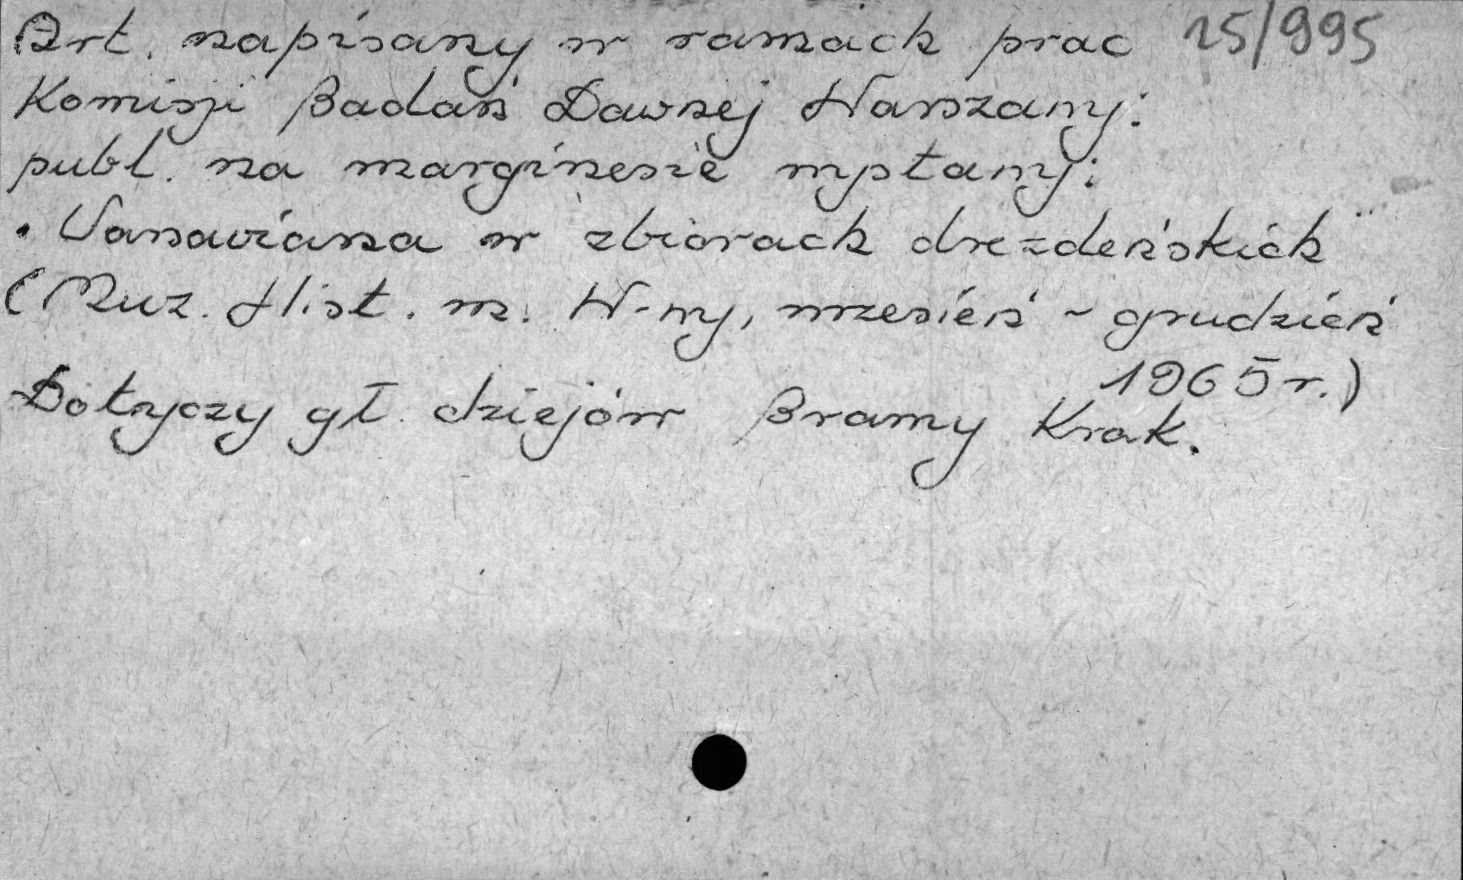 Art. napisany w ramach prac 15/995
Komisji Badań Dawnej Warszawy;
publ. na marginesie wystawy:
„Varsaviana w zbiorach drezdeńskich”
(Muz. Hist. m. W-wy, wrzesień - grudzień
1965 r.)
Dotyczy gł. dziejów Bramy Krak.